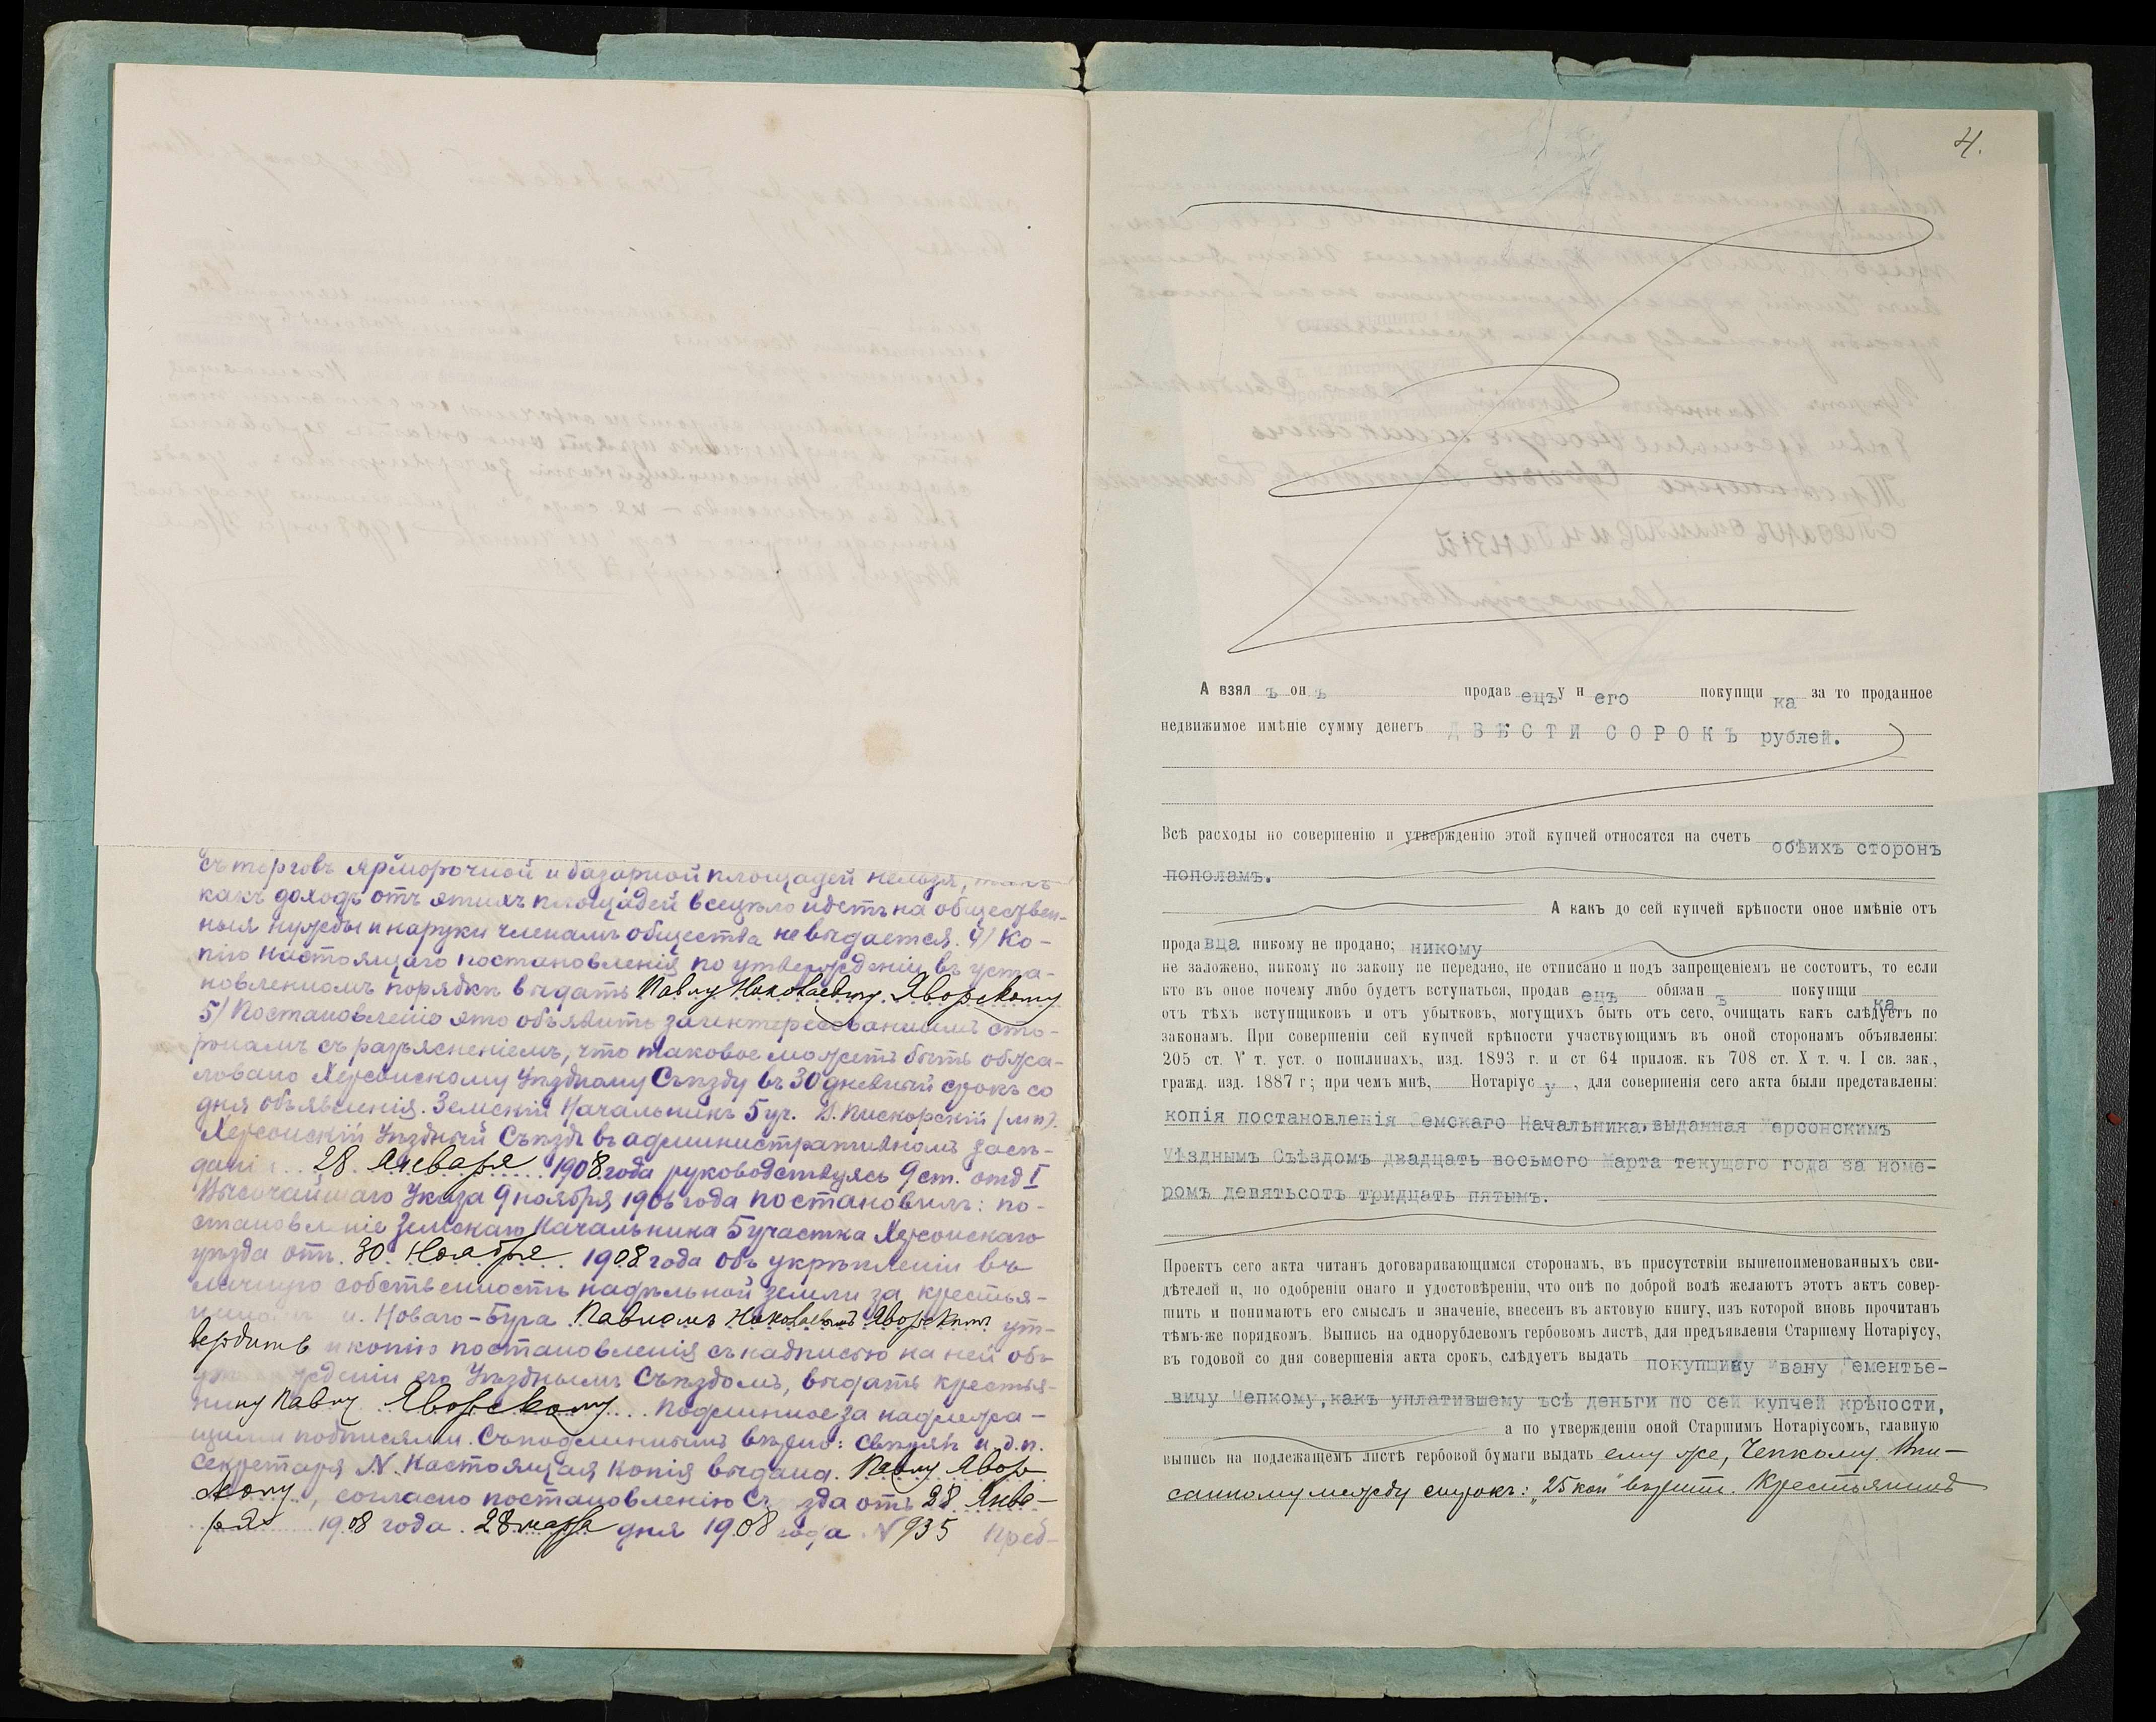 съ торговъ ярморочной и базарной площадей нельзя, такъ
какъ доходъ отъ этихъ площадей всецѣло идетъ на обществен-
ныя нужды и на руки членамъ общества не выдается. 4) Ко-
пію настоящаго постановленія по утвержденіи въ уста-
новленномъ порядкѣ выдать Павлу Николаевичу Яворскому
5) Постановленіе это объявить заинтересованнымъ сто-
ронамъ съ разъясненіемъ, что таковое можетъ быть обжа-
ловано Херсонскому Уѣздному Съѣзду въ 30 дневный срокъ со
дня объявленія. Земскій Начальникъ 5 уч. Пискорскій (мп).
Херсонскій Уѣздный Съѣздъ въ административномъ засѣ-
дані 28 Января 1908 года руководствуясь 9 ст. отд I
Высочайшаго Указа 9 ноября 1906 года постановилъ: по-
становленіе Земскаго Начальника 5 участка Херсонскаго
уѣзда отъ 30 Ноября 1908 года объ укрѣпленіи въ
личную собственность надѣльной земли за крестья-
ниномъ м. Новаго-Буга Павломъ Николаевымъ Яворскимъ ут-
вердить и копію постановленія съ надписью на ней объ
утвержденіи его Уѣзднымъ Съѣздомъ, выдать крестья-
нину Павлу Яворскому. Подлинное за надлежа-
щими подписями. Съ подлиннымъ вѣрно: и. д. п.
секретаря N. Настоящая копія выдана Павлу Явор
скому, согласно постановленію Съ зда отъ 28 Янва-
ря 1908 года. 28 марта дня 1908 года N 935 Пред-
4.
А взял ъ он ъ продав ецъ у н его покупщи ка за то проданное
недвижимое имѣніе сумму денегъ ДВѢСТИ СОРОКЪ рублей.
Всѣ расходы по совершенію и утвержденію этой купчей относятся на счетъ обѣихъ сторонъ
пополамъ.
А какъ до сей купчей крѣпости оное имѣніе отъ
продавца никому не продано; никому
не заложено, никому по закону не передано, не отписано и подъ запрещеніемъ не состоитъ, то если
кто въ оное почему либо будетъ вступаться, продав ецъ обязан ъ покупщи ка
отъ тѣхъ вступщиковъ и отъ убытковъ, могущихъ быть отъ сего, очищать какъ слѣдуетъ по
законамъ. При совершеніи сей купчей крѣпости участвующимъ въ оной сторонамъ объявлены:
205 ст. V т. уст. о пошлинахъ, изд. 1893 г. и ст 64 прилож. къ 708 ст. X т. ч. I св. зак.,
гражд. изд. 1887 г; при чемъ мнѣ, Нотаріус у, для совершенія сего акта были представлены:
копія постановленія Земскаго Начальника, выданная Херсонскимъ
Уѣзднымъ Съѣздомъ двадцать восьмого Марта текущаго года за номе-
ромъ девятьсотъ тридцать пятымъ.
Проектъ сего акта читанъ договаривающимся сторонамъ, въ присутствіи вышепоименованныхъ сви-
дѣтелей и, по одобреніи онаго и удостовѣреніи, что онѣ по доброй волѣ желаютъ этотъ актъ совер-
шить и понимаютъ его смыслъ и значеніе, внесенъ въ актовую книгу, изъ которой вновь прочитанъ
тѣмъ-же порядкомъ. Выпись на однорублевомъ гербовомъ листѣ, для предъявленія Старшему Нотаріусу,
въ годовой со дня совершенія акта срокъ, слѣдуетъ выдать покупщику Ивану Дементье-
вичу Чепкому, какъ уплатившему всѣ деньги по сей купчей крѣпости,
а по утвержденіи оной Старшимъ Нотаріусомъ, главную
выпись на подлежащемъ листѣ гербовой бумаги выдать ему же, Чепкому. Впи-
санному между строкъ: „25 коп" вѣрить. Крестьянинъ